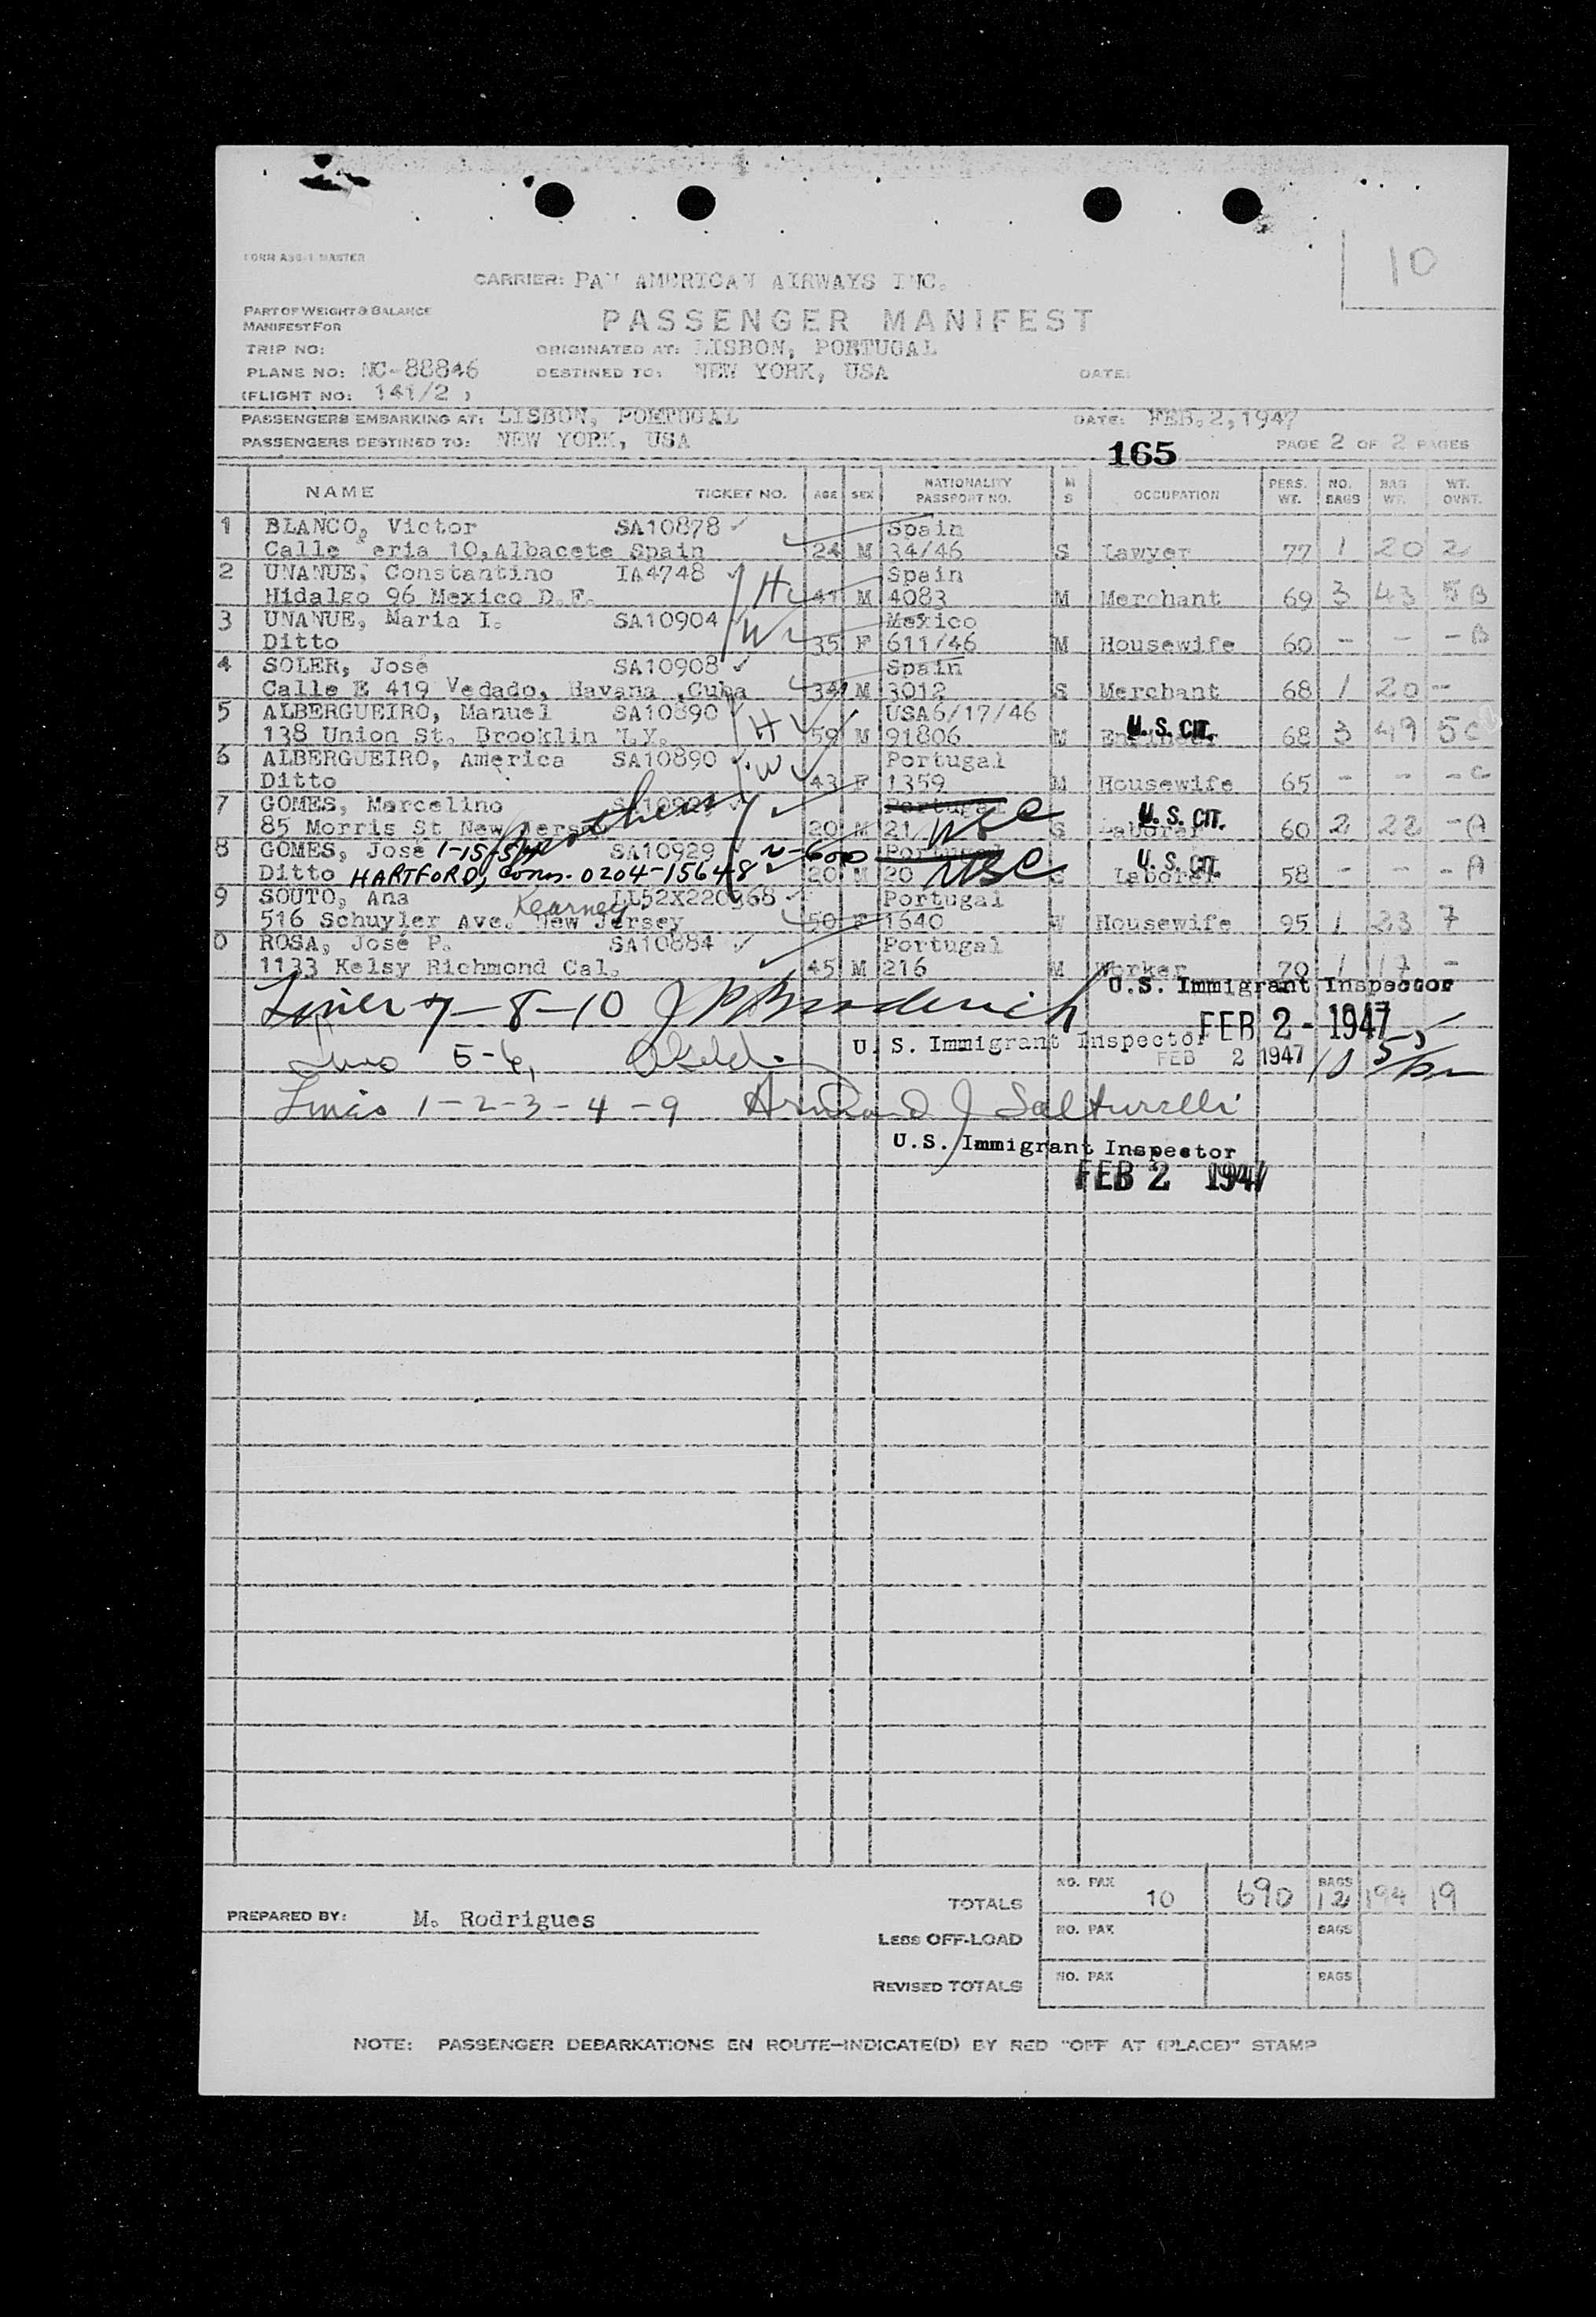 10
FORM ASG-1 MASTER
CARRIER: PAN AMERICAN AIRWAYS INC.
PART OF WEIGHT & BALANCE
MANIFEST FOR
PASSENGER MANIFEST
TRIP NO: ORIGINATED AT: LISBON, PORTUGAL
PLANE NO: NC-88846 DESTINED TO: NEW YORK, USA DATE:
(FLIGHT NO: 141/2 )
PASSENGERS EMBARKING AT: LISBON, PORTUGAL DATE: FEB.2,1947
PASSENGERS DESTINED TO: NEW YORK, USA 165 PAGE 2 OF 2 PAGES
NAME TICKET NO. AGE SEX NATIONALITY PASSPORT NO. M S OCCUPATION PERS. WT. NO. BAGS BAG WT. WT. OVNT.
1 BLANCO, Victor SA10878 Spain
Calle eria 10,Albacete Spain 24 M 34/46 S Lawyer 77 1 20 2
2 UNANUE, Constantino IA4748 H Spain
Hidalgo 96 Mexico D.F. 41 M 4083 M Merchant 69 3 43 5 B
3 UNANUE, Maria I. SA10904 W Mexico
Ditto 35 F 611/46 M Housewife 60 - - - B
4 SOLER, José SA10908 Spain
Calle E 419 Vedado, Havana ,Cuba 34 M 3012 S Merchant 68 1 20 -
5 ALBERGUEIRO, Manuel SA10890 H USA6/17/46
138 Union St. Brooklin N.Y. 59 M 91806 M Engineer U.S. CIT. 68 3 49 5 C
6 ALBERGUEIRO, America SA10890 W Portugal
Ditto 43 F 1359 M Housewife 65 - - - C
7 GOMES, Marcelino brothers Portugal
85 Morris St New Jersey 20 M 21 USC S Laborer U.S. CIT. 60 2 22 - A
8 GOMES, José 1-15-54 SA10929 N-600 Portugal
Ditto HARTFORD, Conn. 0204-15648 20 M 20 USC S Laborer U.S. CIT. 58 - - - A
9 SOUTO, Ana Kearney Portugal
516 Schuyler Ave. New Jersey 50 F 1640 Housewife 95 1 23 7
0 ROSA, José P. SA10884 Portugal
1133 Kelsy Richmond Cal. 45 M 216 M Worker 70 1 17 -
Lines 7-8-10 J P Broderick U.S. Immigrant Inspector
FEB 2 - 1947
Lines 5-6, U.S. Immigrant Inspector FEB 2 1947
Lines 1-2-3-4-9 Armand J Salturelli
U.S. Immigrant Inspector
FEB 2 1947
TOTALS NO. PAX 10 690 BAGS 12 194 19
PREPARED BY: M. Rodrigues
LESS OFF-LOAD NO. PAX BAGS
REVISED TOTALS NO. PAX BAGS
NOTE: PASSENGER DEBARKATIONS EN ROUTE—INDICATE(D) BY RED "OFF AT (PLACE)" STAMP